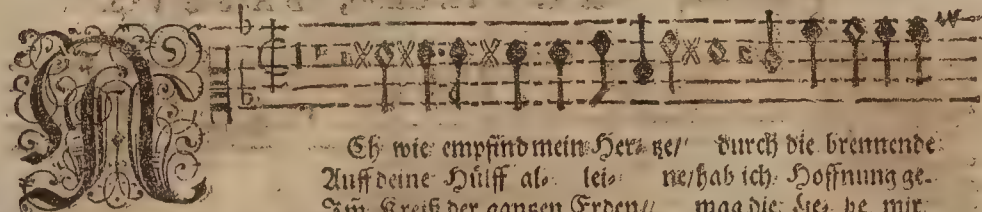 A
Ch wie empfind mein Her⸗ tze/ durch die brennende
Auff deine Hülff al⸗ lei⸗ ne/ hab ich Hoffnung ge⸗
Im Kreiß der gantzen Erden/ mag die Lie⸗ be mir